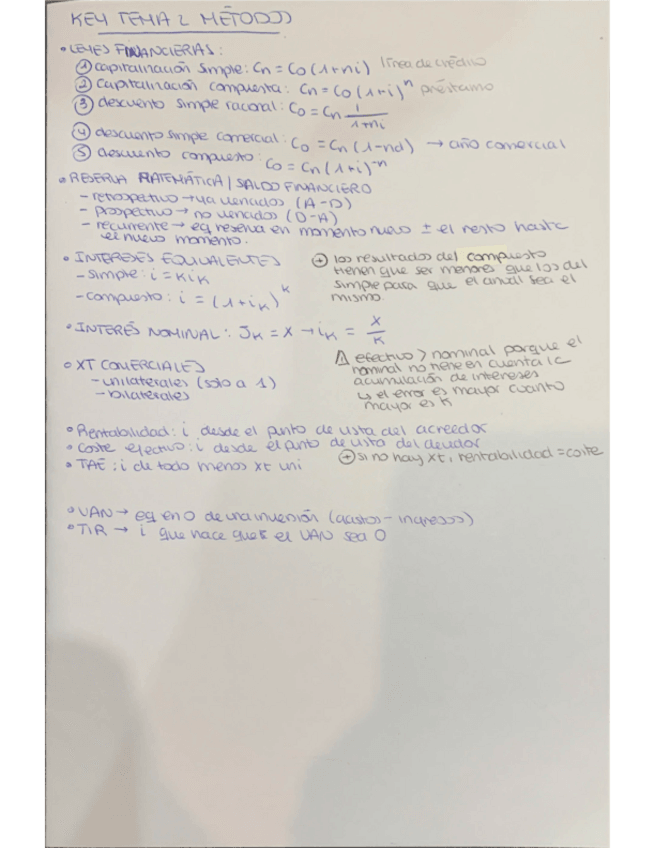 KEY TEMA 2 MÉTODOS
• LEYES FINANCIERAS:
① capitalización simple: Cn = C0 (1+ni) línea de crédito
② capitalización compuesta: Cn = C0 (1+i)^n préstamo
③ descuento simple racional: C0 = Cn 1/(1+ni)
④ descuento simple comercial: C0 = Cn (1-nd) → año comercial
⑤ descuento compuesto: C0 = Cn (1+i)^-n
• RESERVA MATEMÁTICA / SALDO FINANCIERO
- retrospectivo → ya vencidos (A-D)
- prospectivo → no vencidos (D-A)
- recurrente → eq reserva en momento nuevo ± el resto hasta
el nuevo momento.
• INTERESES EQUIVALENTES
- simple: i = k ik
- compuesto: i = (1+ik)^k
⊕ los resultados del compuesto
tienen que ser menores que los del
simple para que el anual sea el
mismo.
• INTERÉS NOMINAL: Jk = x → ik = x/k
⚠ efectivo > nominal porque el
nominal no tiene en cuenta la
acumulación de intereses
↳ el error es mayor cuanto
mayor es k
• XT COMERCIALES
- unilaterales (solo a 1)
- bilaterales
• Rentabilidad: i desde el punto de vista del acreedor
• Coste efectivo: i desde el punto de vista del deudor
• TAE: i de todo menos xt uni
⊕ si no hay xt, rentabilidad = coste
• VAN → eq en 0 de una inversión (gastos - ingresos)
• TIR → i que hace que el VAN sea 0